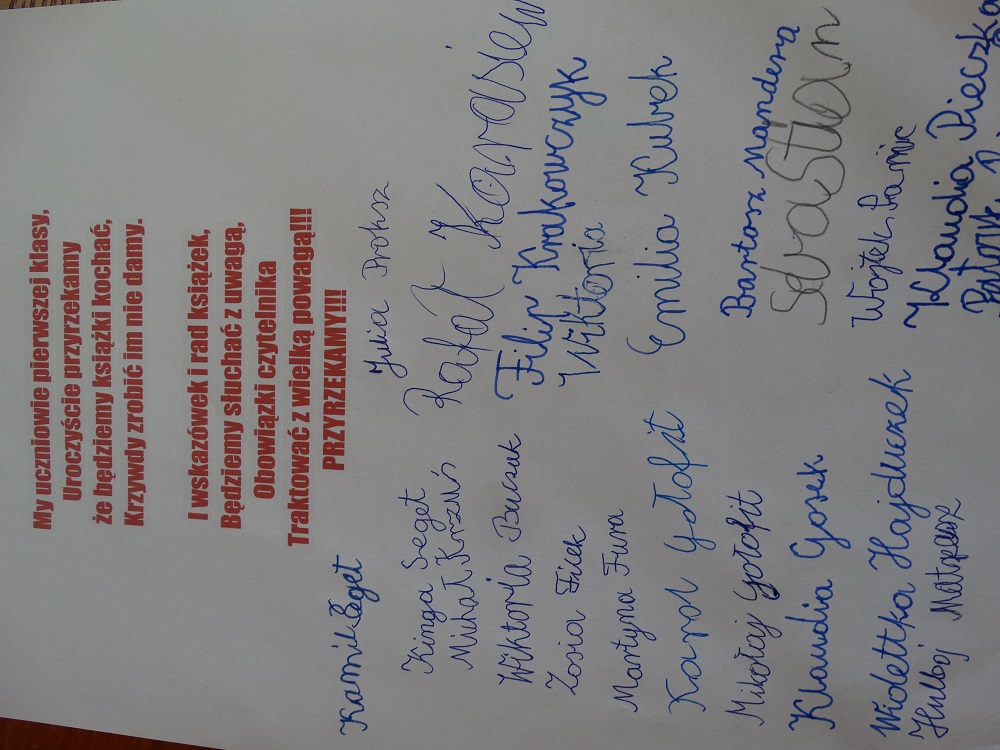 My uczniowie pierwszej klasy,
Uroczyście przyrzekamy
że będziemy książki kochać,
Krzywdy zrobić im nie damy.
I wskazówek i rad książek,
Będziemy słuchać z uwagą,
Obowiązki czytelnika
Traktować z wielką powagą!!!
PRZYRZEKAMY!!!
Kamil Seget
Kinga Seget
Michał Krzuś
Wiktoria Buczek
Zosia Filek
Martyna Fura
Karol Gołofit
Mikołaj Gołofit
Klaudia Gosek
Wiolettka Hajduczek
Julia Proksz
Rafał
Filip Krakowczyk
Wiktoria
Emilia Kubek
Bartosz Mandera
Wojtek
Klaudia Pieczka
Patryk